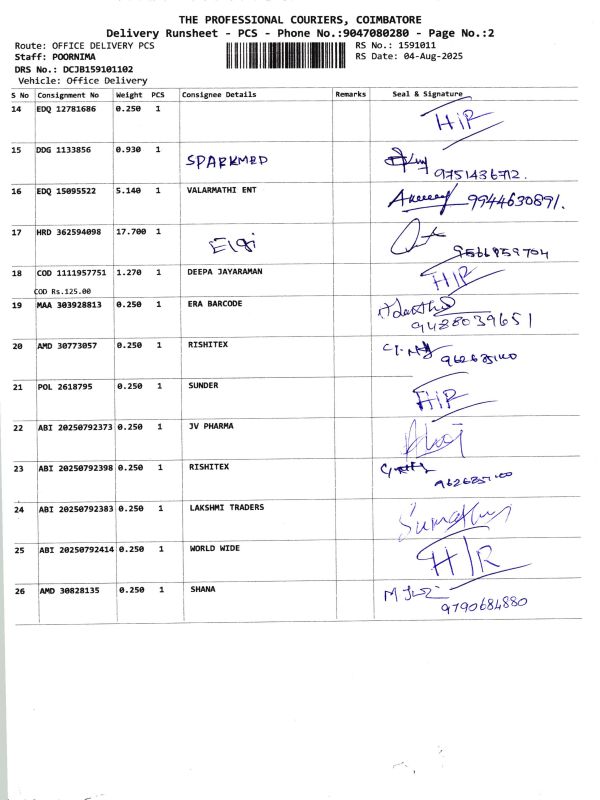 THE PROFESSIONAL COURIERS, COIMBATORE
Delivery Runsheet - PCS - Phone No.:9047080280 - Page No.:2
Route: OFFICE DELIVERY PCS
RS No.: 1591011
Staff: POORNIMA
RS Date: 04-Aug-2025
DRS No.: DCJB159101102
Vehicle: Office Delivery
S No Consignment No Weight PCS Consignee Details Remarks Seal & Signature
14 EDQ 12781686 0.250 1 H/R
15 DDG 1133856 0.930 1 SPARKMED
9751436712.
16 EDQ 15095522 5.140 1 VALARMATHI ENT 9944630891.
17 HRD 362594098 17.700 1 Elgi
9566959704
18 COD 1111957751 1.270 1 DEEPA JAYARAMAN H/R
COD Rs.125.00
19 MAA 303928813 0.250 1 ERA BARCODE
9488039651
20 AMD 30773057 0.250 1 RISHITEX
21 POL 2618795 0.250 1 SUNDER H/R
22 ABI 20250792373 0.250 1 JV PHARMA
23 ABI 20250792398 0.250 1 RISHITEX
24 ABI 20250792383 0.250 1 LAKSHMI TRADERS
25 ABI 20250792414 0.250 1 WORLD WIDE H/R
26 AMD 30828135 0.250 1 SHANA
9790684880